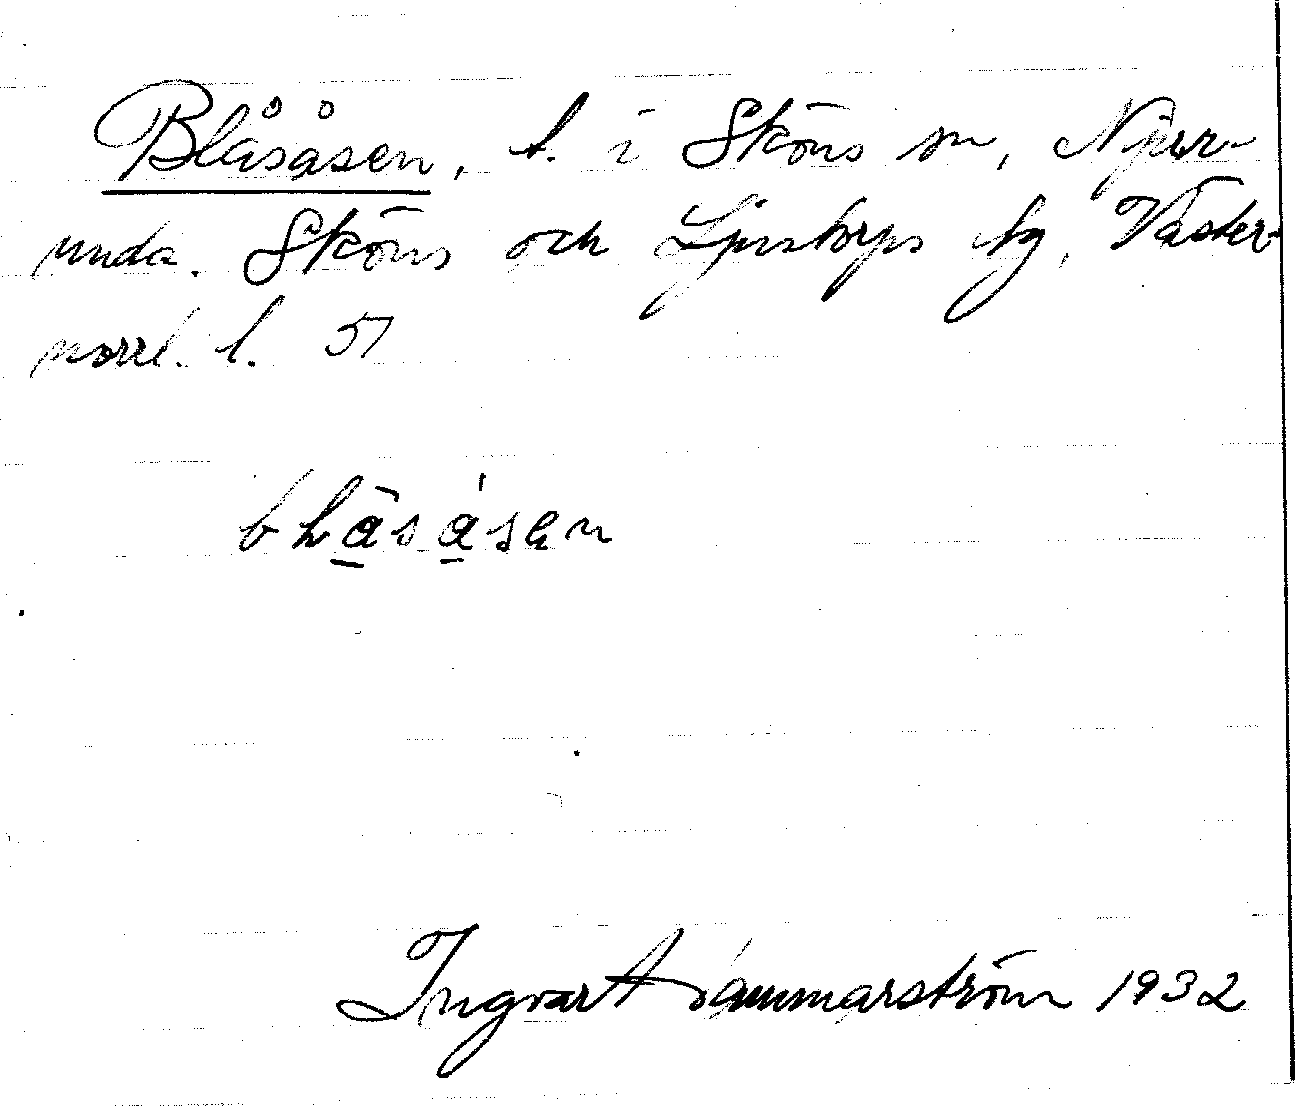 Blåsåsen, t. i Sköns sn, Njur-
unda. Sköns och Ljustorps tg, Väster-
norrl. l. 51
bḷāsásen
Ingvart Hammarström 1932